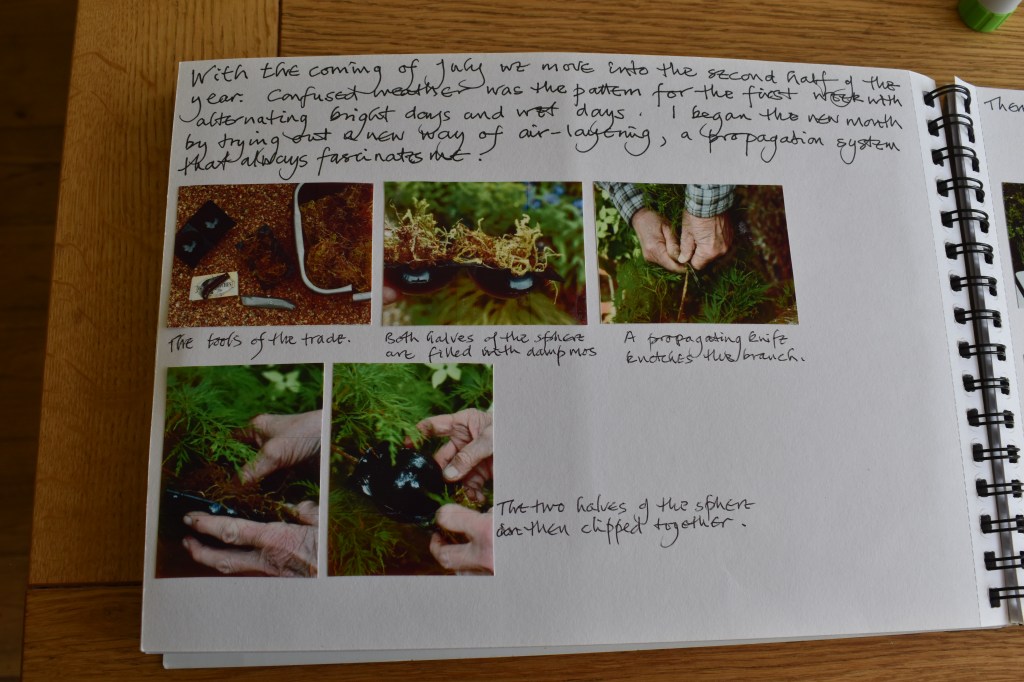 With the coming of July we move into the second half of the
year. Confused weather was the pattern for the first week with
alternating bright days and wet days. I began the new month
by trying out a new way of air-layering, a propagation system
that always fascinates me.
The tools of the trade.
Both halves of the sphere
are filled with damp mos
A propagating knife
knotches the branch.
The two halves of the sphere
are then clipped together.